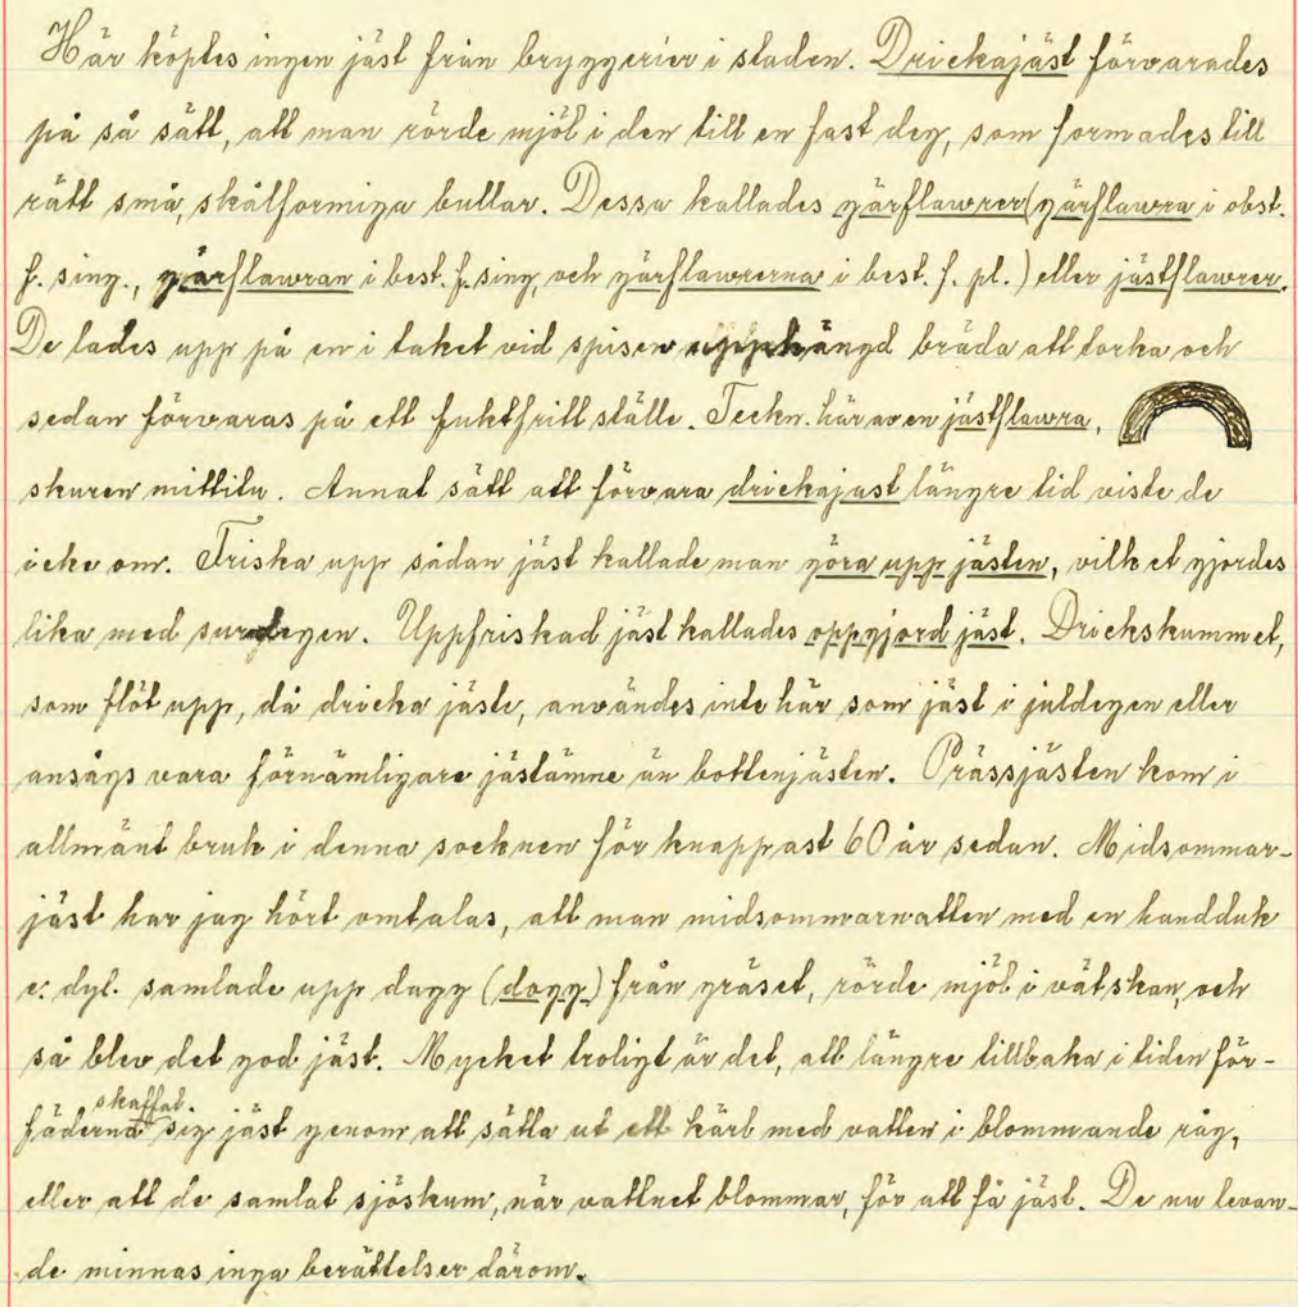 Här köptes ingen jäst från bryggerier i staden. Drickajäst förvarades
på så sätt, att man rörde mjöl i den till en fast deg, som formades till
rätt små, skålformiga bullar. Dessa kallades gärflawrer (gärflawra i obst.
f. sing., gärflawran i best. f. sing, och gärflawrerna i best. f. pl.) eller jästflawrer.
De lades upp på en i taket vid spisen upphängd bräda att torka och
sedan förvaras på ett fuktfritt ställe. Teckn. här av en jästflawra,
skuren mittitu. Annat sätt att förvara drickajast längre tid viste de
icke om. Friska upp sådan jäst kallade man göra upp jästen, vilket gjordes
lika med surdegen. Uppfriskad jäst kallades oppgjord jäst. Drickskummet,
som flöt upp, då dricka jäste, användes inte här som jäst i juldegen eller
ansågs vara förnämligare jästämne än bottenjästen. Prässjästen kom i
allmänt bruk i denna socknen för knappast 60 år sedan. Midsommar-
jäst har jag hört omtalas, att man midsommarnatten med en handduk
e. dyl. samlade upp dagg (dogg) från gräset, rörde mjöl i vätskan, och
så blev det god jäst. Mycket troligt är det, att längre tillbaka i tiden för-
fäderna skaffat sig jäst genom att sätta ut ett kärl med vatten i blommande råg,
eller att de samlat sjöskum, när vattnet blommar, för att få jäst. De nu levan-
de minnas inga berättelser därom.